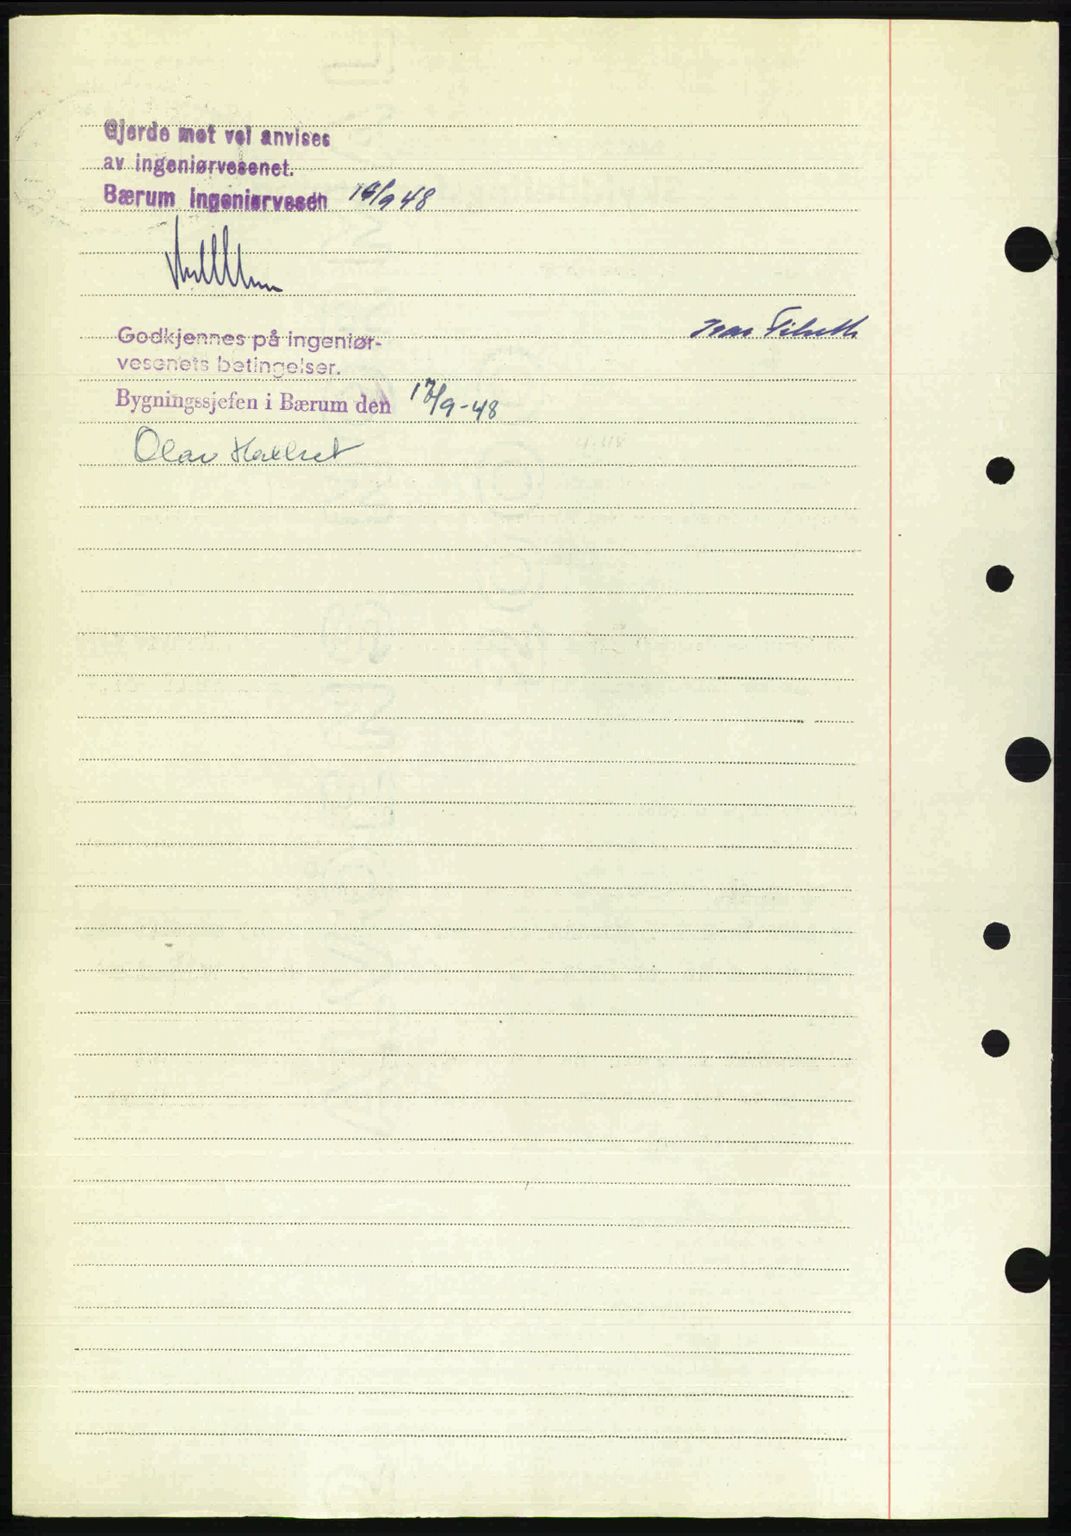 Gjerde mot vei anvises
av ingeniørvesenet.
Bærum ingeniørvesen 16/9 48
Godkjennes på ingeniør-
vesenets betingelser.
Bygningssjefen i Bærum den 17/9-48
Olav Hallset